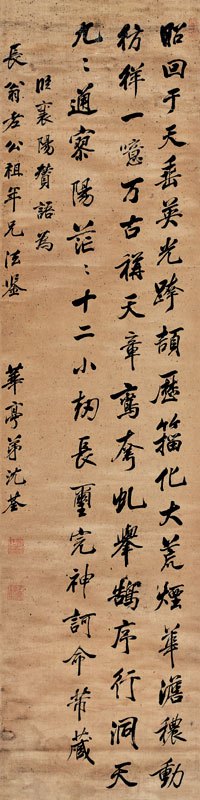 昭回于天垂英光跨頡歷籀化大荒煙華澹穠動
彷徉一噫万古稱天章鸞夸虬舉鵠序行洞天
九〻通寥陽茫〻十二小劫長璽完神訶命芾藏
臨襄陽贊語為
長翁老公祖年兄法鑒 華亭弟沈荃